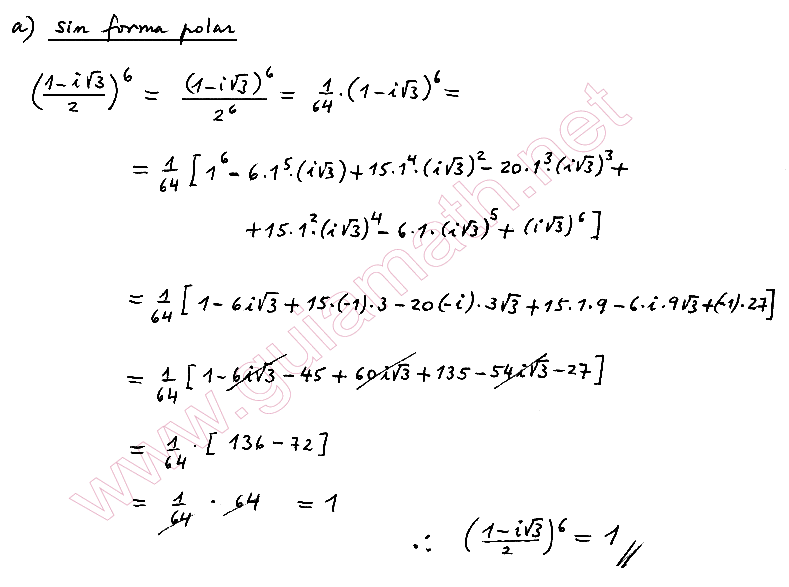 a) sin forma polar
((1-i√3)/2)^6 = (1-i√3)^6/2^6 = 1/64 · (1-i√3)^6 =
= 1/64 [1^6 - 6.1^5.(i√3) + 15.1^4.(i√3)^2 - 20.1^3.(i√3)^3 +
+ 15.1^2.(i√3)^4 - 6.1.(i√3)^5 + (i√3)^6]
= 1/64 [1 - 6i√3 + 15.(-1).3 - 20(-i).3√3 + 15.1.9 - 6.i.9√3 + (-1).27]
= 1/64 [1 - 6i√3 - 45 + 60i√3 + 135 - 54i√3 - 27]
= 1/64 · [136 - 72]
= 1/64 · 64 = 1
∴ ((1-i√3)/2)^6 = 1 //
www.guiamath.net